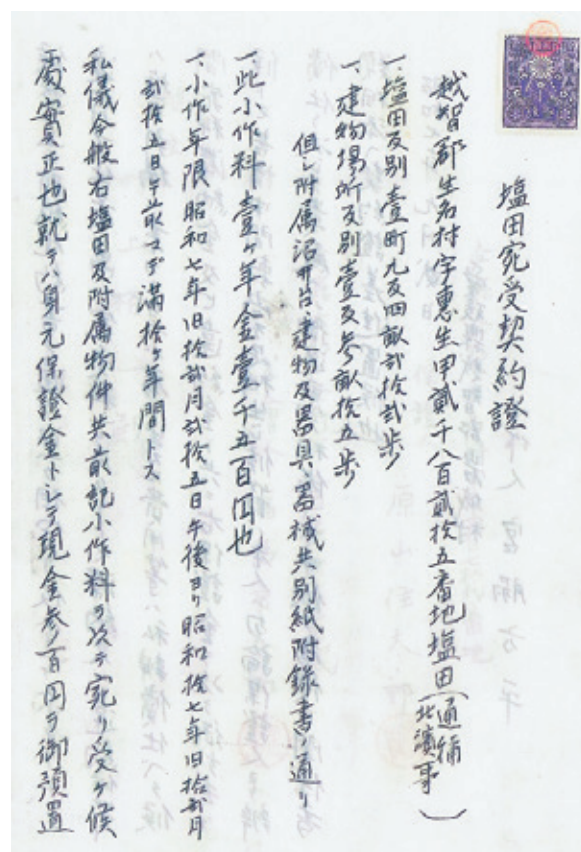 塩田宛受契約證
越智郡生名村字惠生甲貳千八百貳拾五番地塩田(通稱北濱事)
一、塩田反別壹町九反四畝貳拾貳歩
一、建物場所反別壹反参畝拾五歩
但シ附属沼井台、建物及器具、器械共別紙附録書ノ通リ
一、此小作料壹ヶ年金壹千五百円也
一、小作年限昭和七年旧拾貳月貳拾五日午後ヨリ昭和拾七年旧拾貳月
貳拾五日午前マデ満拾ヶ年間トス
私儀今般右塩田及附属物件共前記小作料ヲ次テ宛リ受ケ候
處實正也就テハ身元保證金トシテ現金参百円ヲ御預置